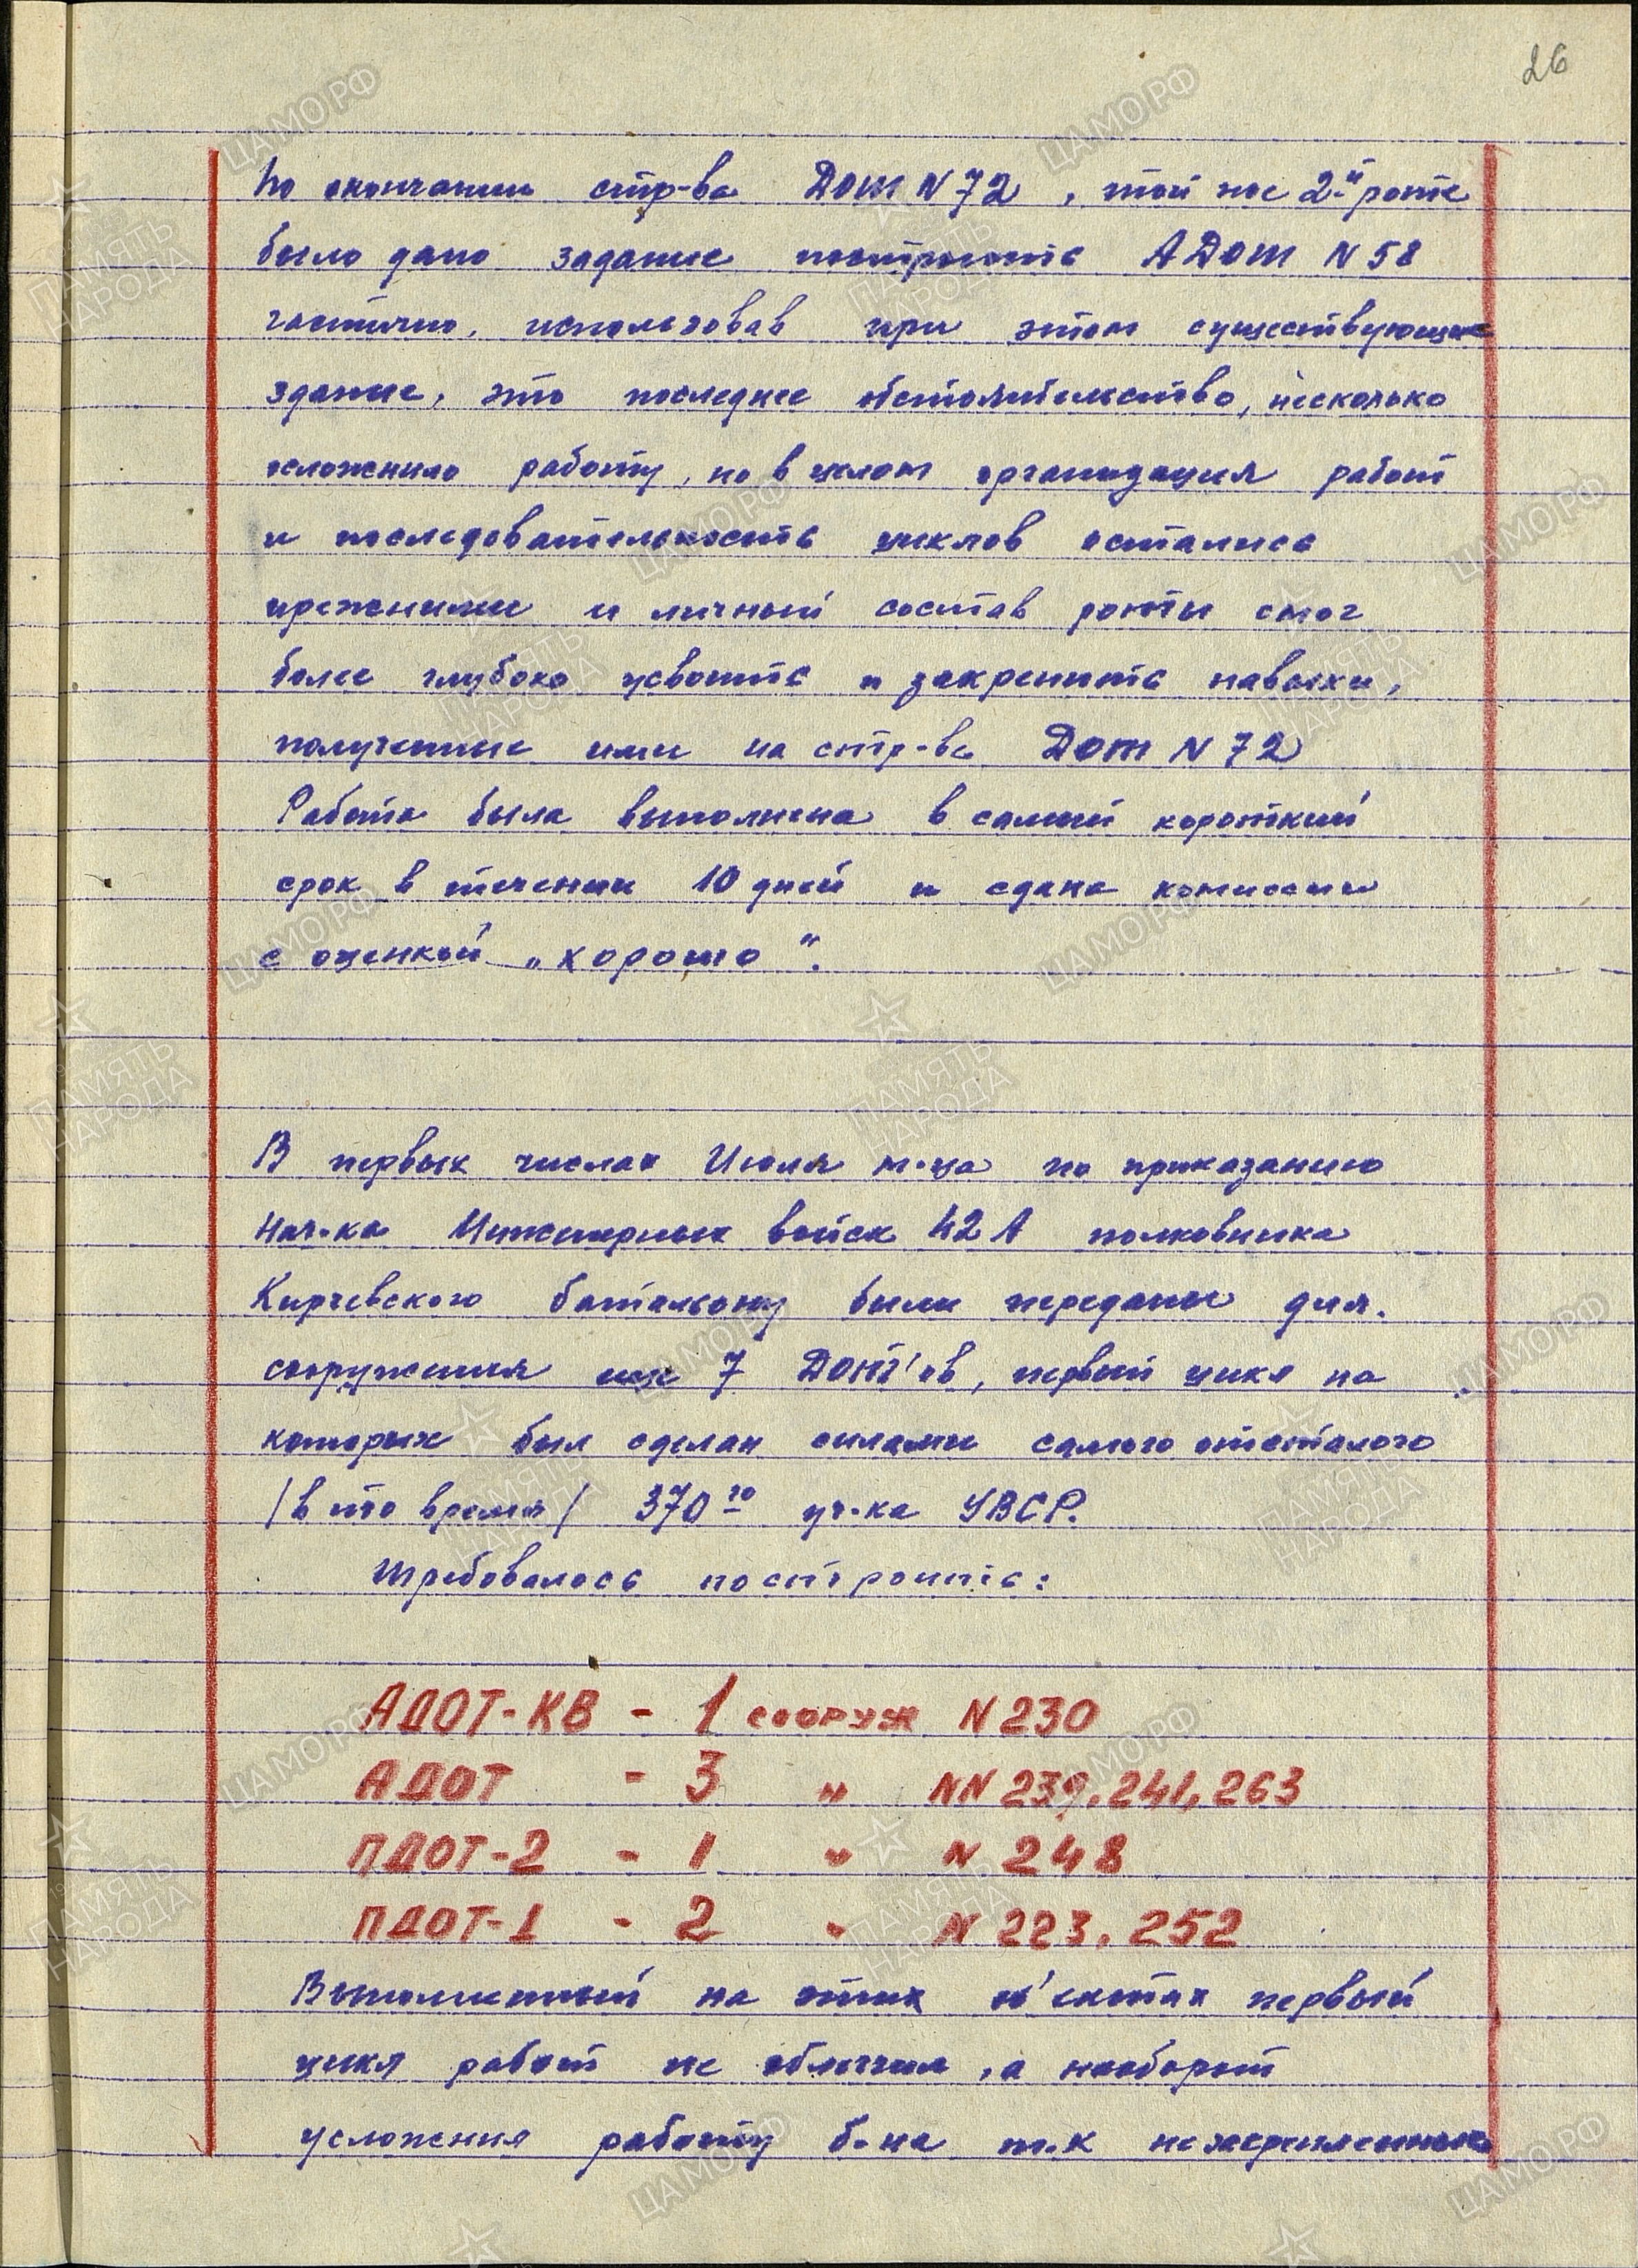 26
По окончании стр-ва Дот N 72, той же 2-й роте
было дано задание построить АДот N 58
частично, использовав при этом существующие
здание, это последнее обстоятельство, несколько
осложнило работу, но в целом организация работ
и последовательность циклов остались
прежними и личный состав роты смог
более глубоко усвоить и закрепить навыки,
полученные ими на стр-ве Дот N 72
Работа была выполнена в самый короткий
срок в течении 10 дней и сдана комиссии
с оценкой „хорошо".
В первых числах Июля м-ца по приказанию
Нач-ка Инженерных войск 42 А полковника
Кирчевского батальону были переданы для.
сооружения еще 7 Дот'ов, первый цикл на
которых был сделан силами самого отсталого
/в то время/ 370го уч-ка УВСР.
Требовалось построить:
АДОТ-КВ - 1 сооруж N 230
АДОТ - 3 " NN 239, 241, 263
ПДОТ-2 - 1 " N 248
ПДОТ-1 - 2 " N 223, 252
Выполненный на этих об'ектах первый
цикл работ не облегчил, а наоборот
усложнил работу б-на т.к незакрепленные
ЦАМО.РФ
ПАМЯТЬ НАРОДА